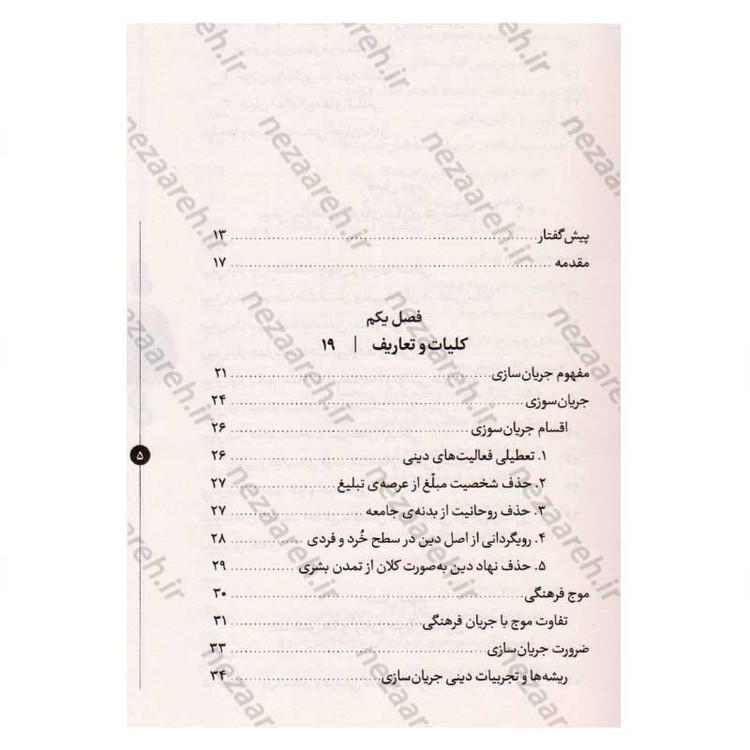 پیش‌گفتار ۱۳
مقدمه ۱۷
فصل یکم
کلیات و تعاریف | ۱۹
مفهوم جریان‌سازی ۲۱
جریان‌سوزی ۲۴
اقسام جریان‌سوزی ۲۶
۱. تعطیلی فعالیت‌های دینی ۲۶
۲. حذف شخصیت مبلّغ از عرصه‌ی تبلیغ ۲۷
۳. حذف روحانیت از بدنه‌ی جامعه ۲۷
۴. رویگردانی از اصل دین در سطح خُرد و فردی ۲۸
۵. حذف نهاد دین به‌صورت کلان از تمدن بشری ۲۹
موج فرهنگی ۳۰
تفاوت موج با جریان فرهنگی ۳۱
ضرورت جریان‌سازی ۳۳
ریشه‌ها و تجربیات دینی جریان‌سازی ۳۴
۵
nezaareh.ir
nezaareh.ir
nezaareh.ir
nezaareh.ir
nezaareh.ir
nezaareh.ir
nezaareh.ir
nezaareh.ir
nezaareh.ir